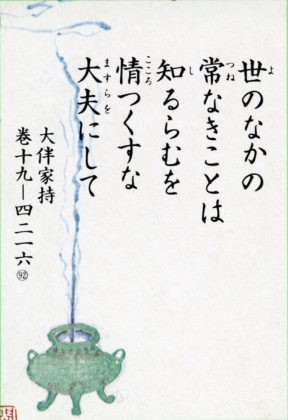 世のなかの
常なきことは
知るらむを
情つくすな
大夫にして
大伴家持
巻十九―四二一六
㊒